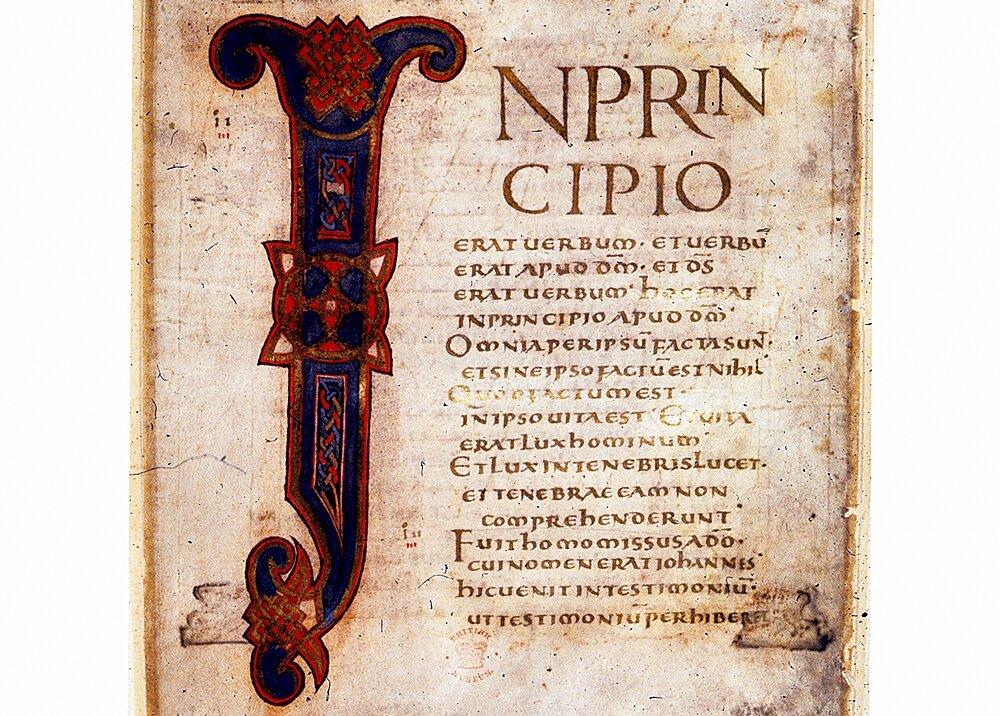 INPRIN
CIPIO
ERAT UERBUM · ET UERBŪ
ERAT APUD DM̄ · ET DS̄
ERAT UERBUM · hOC ERAT
IN PRINCIPIO APUD DM̄
OMNIA PER IPSŪ FACTA SUNT̄ ·
ET SINE IPSO FACTŪ EST NIhIL
QUOD FACTUM EST ·
IN IPSO UITA EST ET UITA
ERAT LUX hOMINUM
ET LUX IN TENEBRIS LUCET ·
ET TENEBRAE EAM NON
COMPREhENDERUNT
FUIT hOMO MISSUS A DŌ ·
CUI NOMEN ERAT IOhANNES
hIC UENIT IN TESTIMONIŪ ·
UT TESTIMONIŪ PERhIBERET
ii
iii
iii
iii
BRITISH
MUSEUM